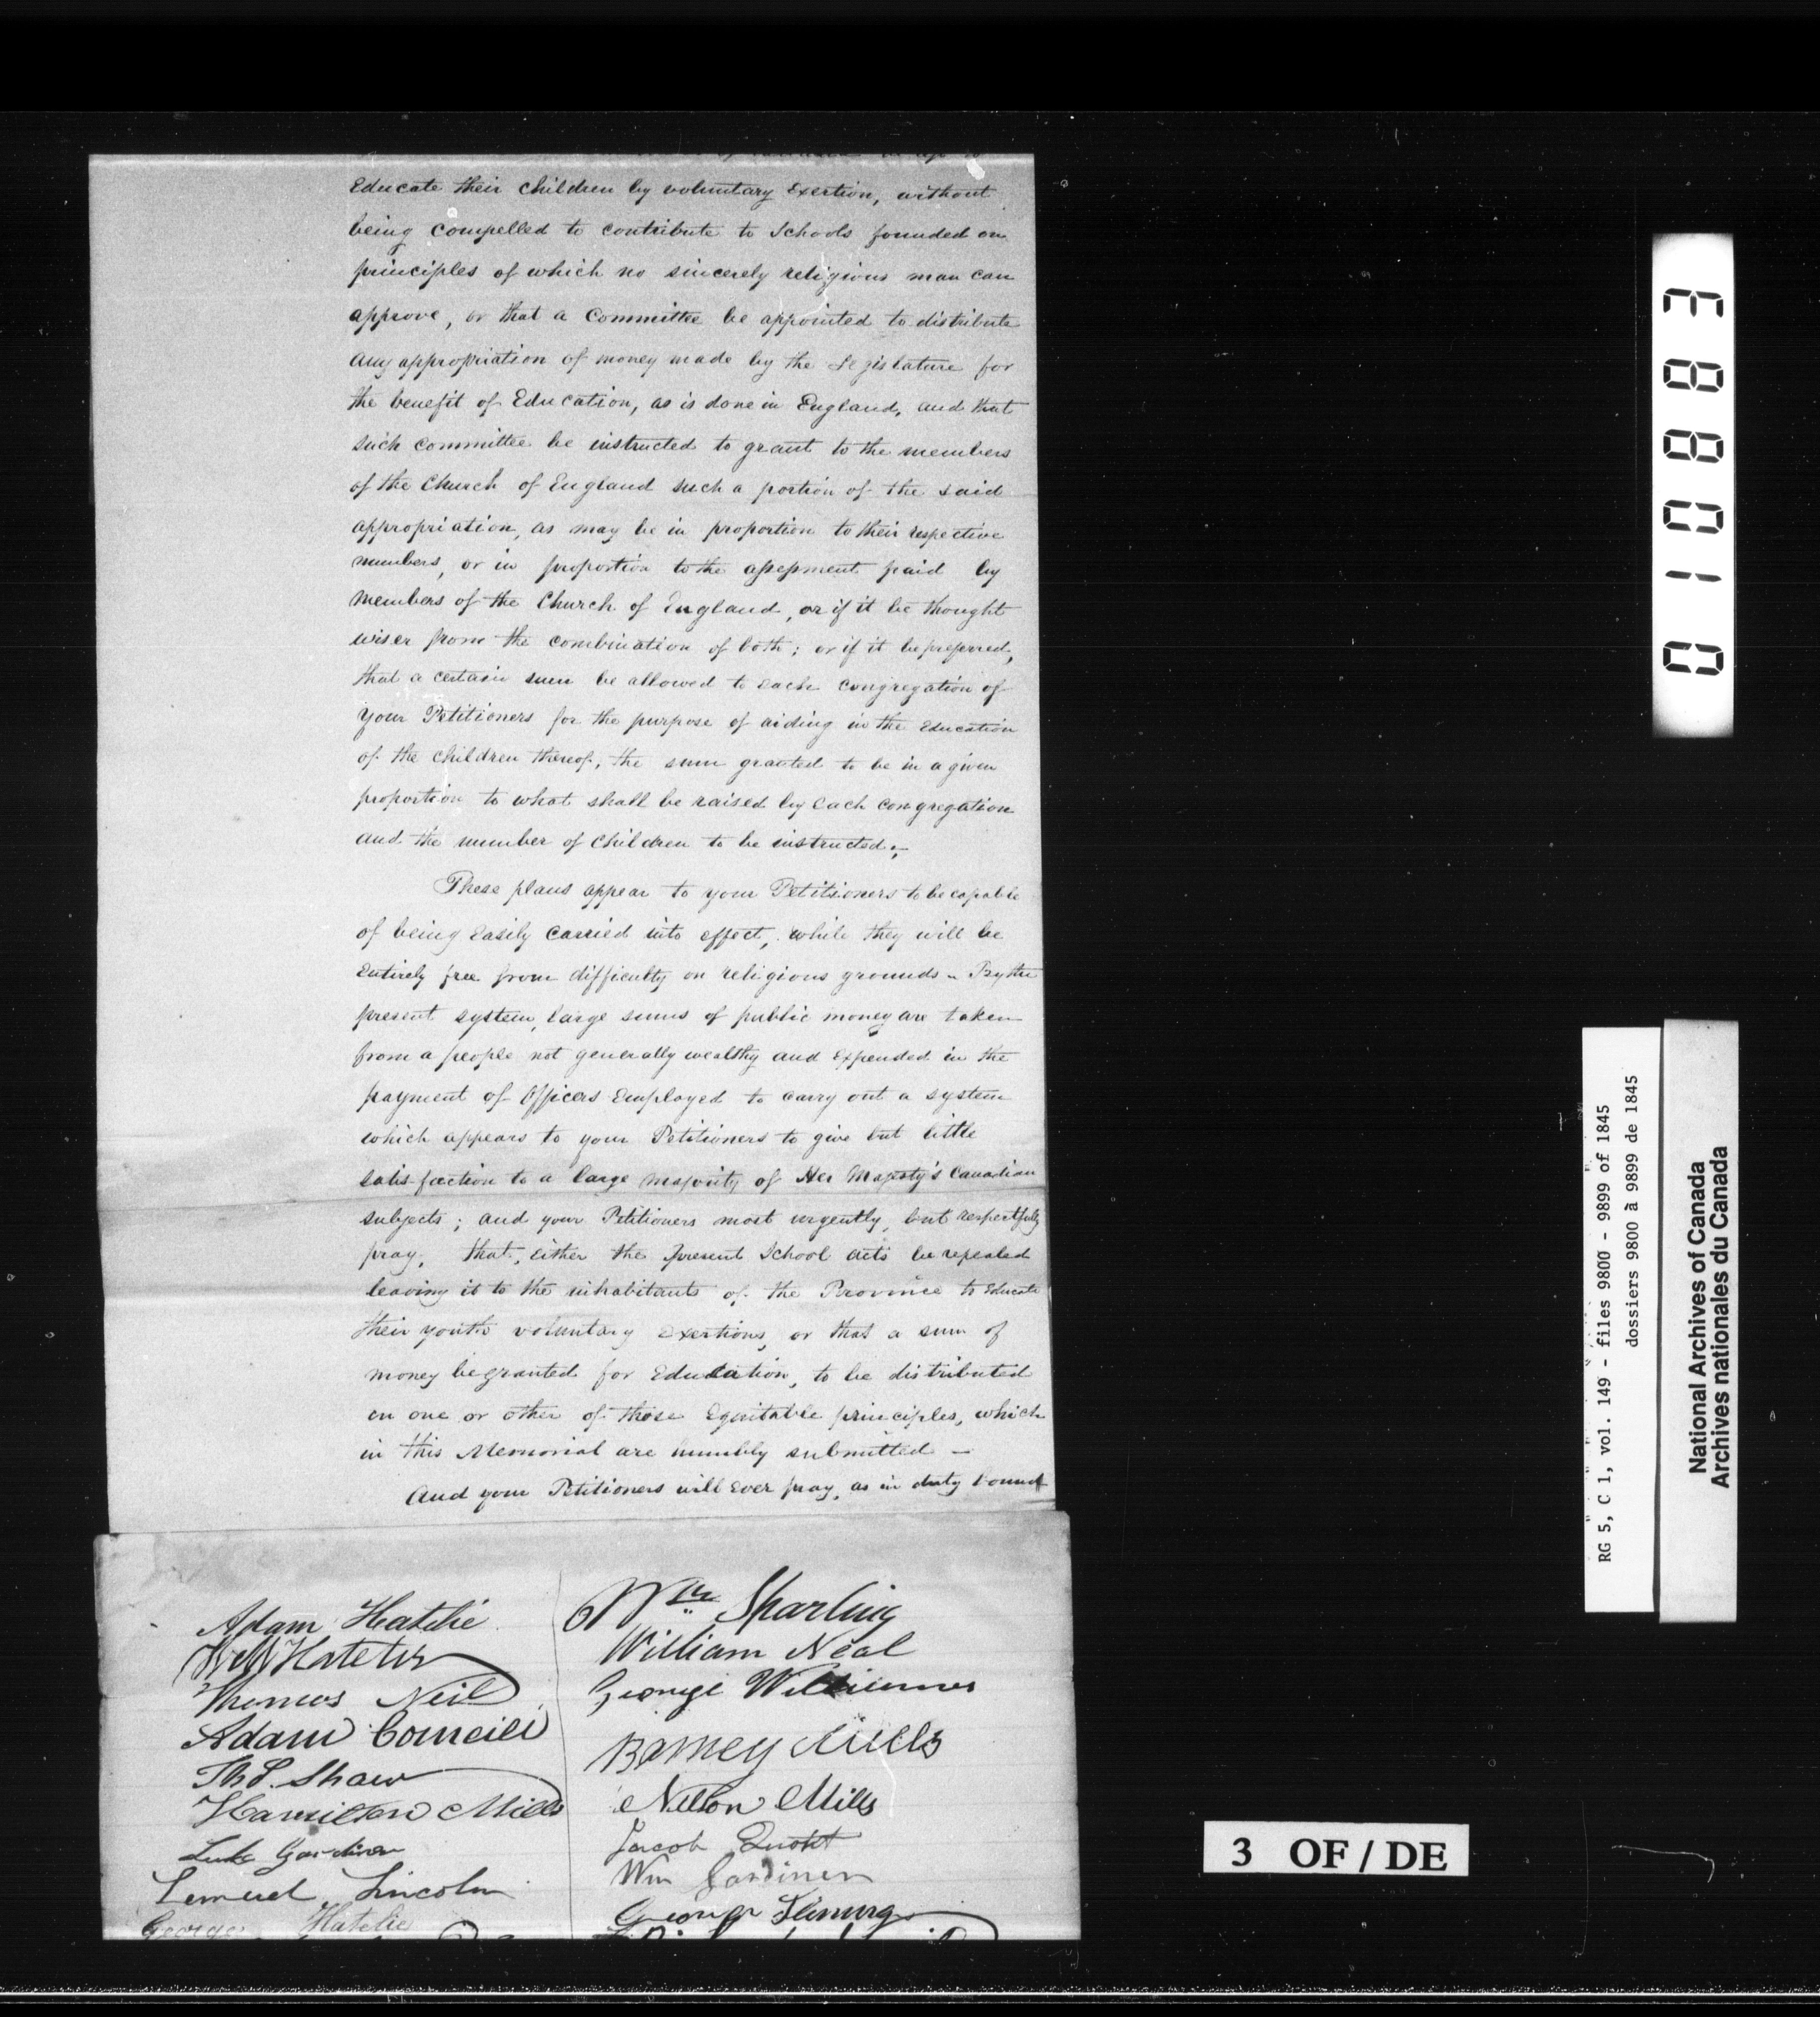 Educate their children by voluntary Exertion, without
being compelled to contribute to Schools founded on
principles of which no sincerely religious man can
approve, or that a Committee be appointed to distribute
any appropriation of money made by the Legislature for
the benefit of Education, as is done in England, and that
such committee be instructed to grant to the members
of the Church of England such a portion of the said
appropriation, as may be in proportion to their respective
numbers, or in proportion to the assessment paid by
members of the Church of England, or if it be thought
wiser from the combination of both; or if it be preferred,
that a certain sum be allowed to each Congregation of
your Petitioners for the purpose of aiding in the Education
of the children thereof, the sum granted to be in a given
proportion to what shall be raised by each congregation
and the number of children to be instructed;
These plans appear to your Petitioners to be capable
of being easily carried into effect, while they will be
Entirely free from difficulty on religious grounds - By the
present system, large sums of public money are taken
from a people not generally wealthy and expended in the
payment of Officers Employed to carry out a system
which appears to your Petitioners to give but little
satisfaction to a large majority of Her Majesty's Canadian
subjects; and your Petitioners most urgently, but respectfully
pray, that, either the present School acts be repealed
leaving it to the inhabitants of the Province to Educate
their youth voluntary exertions, or that a sum of
money be granted for Education, to be distributed
on one or other of those Equitable principles, which
in this Memorial are humbly submitted —
And your Petitioners will Ever pray, as in duty bound
Adam Hatelie
Thomas Neil
Adam
Thos. Shaw
Hamilton Mills
Luke Gardiner
Lemuel Lincoln
George Hatelie
Wm Sharling
William Neal
George
Barney Mills
Nelson Mills
Jacob
Wm Gardiner
George
010883
RG 5, C 1, vol. 149 - files 9800 - 9899 of 1845
dossiers 9800 à 9899 de 1845
National Archives of Canada
Archives nationales du Canada
3 OF / DE